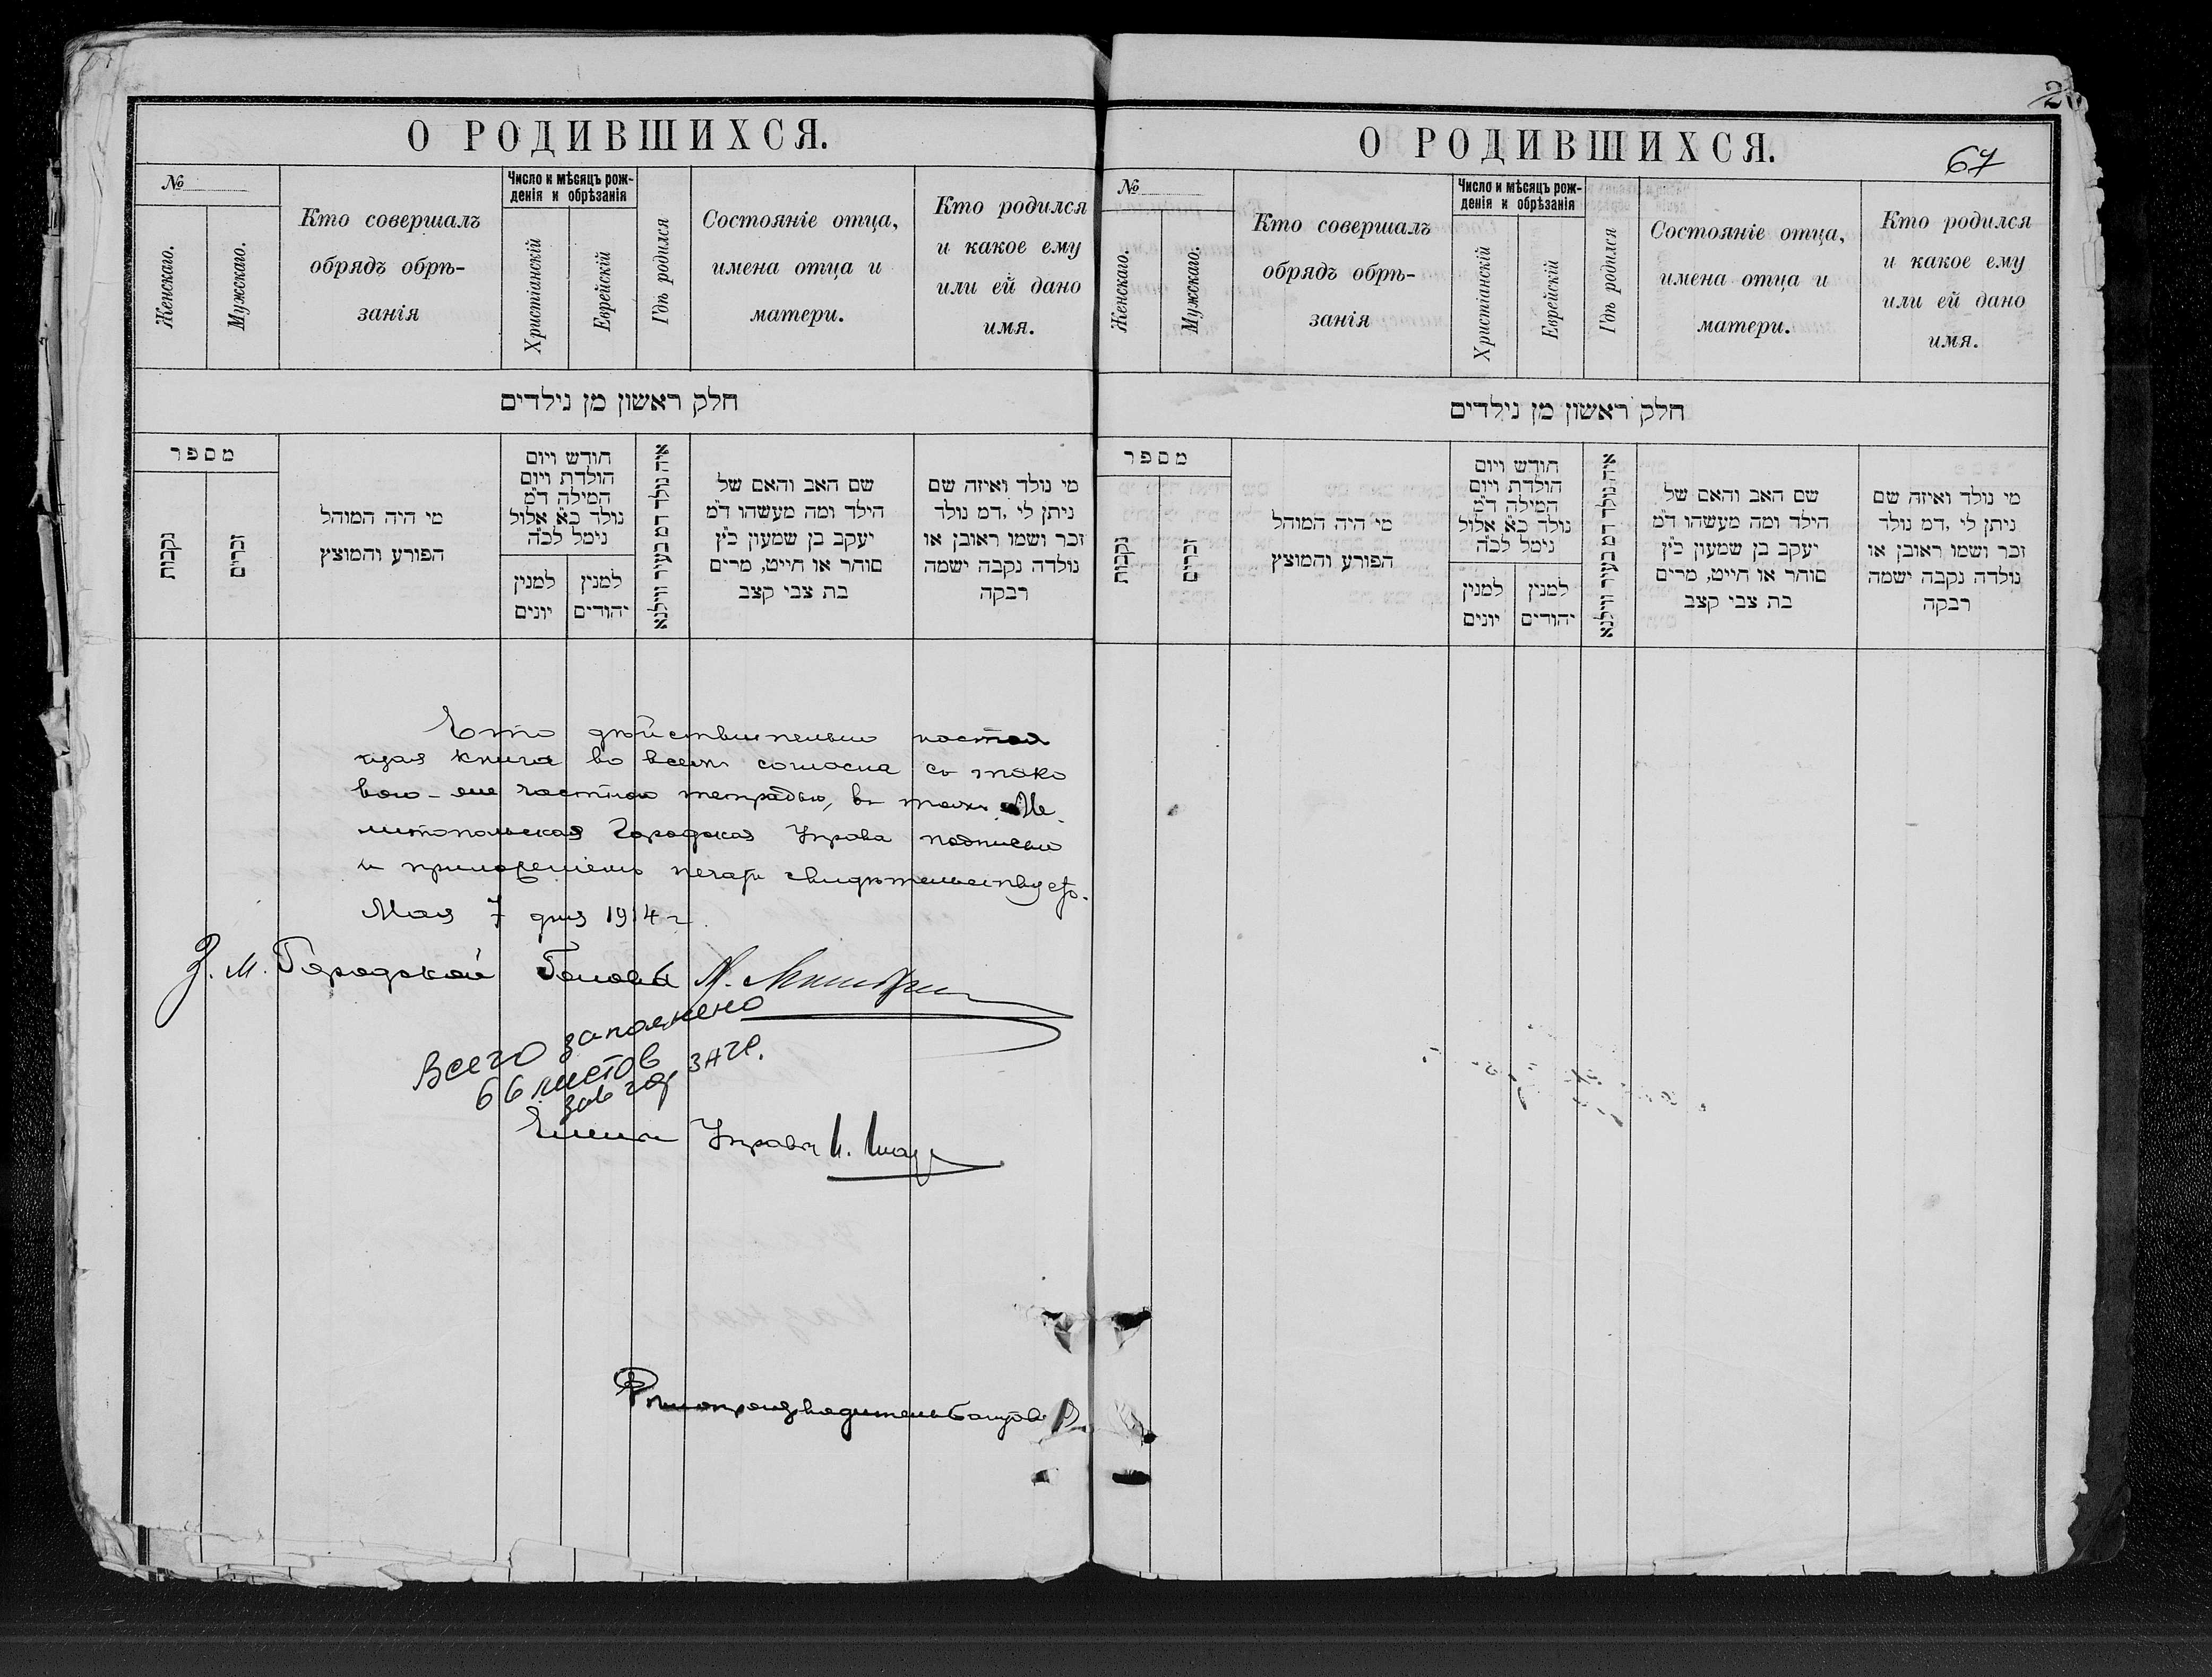 О РОДИВШИХСЯ.
№
Женскаго.
Мужскаго.
Кто совершалъ
обрядъ обрѣ-
занія
Число и мѣсяцъ рож-
денія и обрѣзанія
Христіанскій
Еврейскій
Гдѣ родился
Состояніе отца,
имена отца и
матери.
Кто родился
и какое ему
или ей дано
имя.
חלק ראשון מן נילדים
מספר
נקבות
זכרים
מי היה המוהל
הפורע והמוצץ
חודש ויום
הולדת ויום
המילה ד"מ
נולד כ"א אלול
נימל לכ"ה
למנין
יונים
למנין
יהודים
איה נולד דמ בעיר ווילנא
שם האב והאם של
הילד ומה מעשהו ד"מ
יעקב בן שמעון כ"ץ
סוחר או חייט, מרים
בת צבי קצב
מי נולד ואיזה שם
ניתן לי ,דמ נולד
זכר ושמו ראובן או
נולדה נקבה ישמה
רבקה
Что дѣйствительно настоя
щая книга во всемъ согласна съ тако
вою-же частною тетрадью, въ томъ Ме
литопольская Городская Управа подписью
и приложеніемъ печати свидѣтельствуетъ.
Мая 7 дня 1914 г.
З. М. Городской Голова
Всего заполнено
66 листов
зав гор загс.
Члены Управы
Дѣлопроизводитель
2
О РОДИВШИХСЯ.
67
№
Женскаго.
Мужскаго.
Кто совершалъ
обрядъ обрѣ-
занія
Число и мѣсяцъ рож-
денія и обрѣзанія
Христіанскій
Еврейскій
Гдѣ родился
Состояніе отца,
имена отца и
матери.
Кто родился
и какое ему
или ей дано
имя.
חלק ראשון מן נילדים
מספר
נקבות
זכרים
מי היה המוהל
הפורע והמוצץ
חודש ויום
הולדת ויום
המילה ד"מ
נולד כ"א אלול
נימל לכ"ה
למנין
יונים
למנין
יהודים
איה נולד דמ בעיר ווילנא
שם האב והאם של
הילד ומה מעשהו ד"מ
יעקב בן שמעון כ"ץ
סוחר או חייט, מרים
בת צבי קצב
מי נולד ואיזה שם
ניתן לי ,דמ נולד
זכר ושמו ראובן או
נולדה נקבה ישמה
רבקה